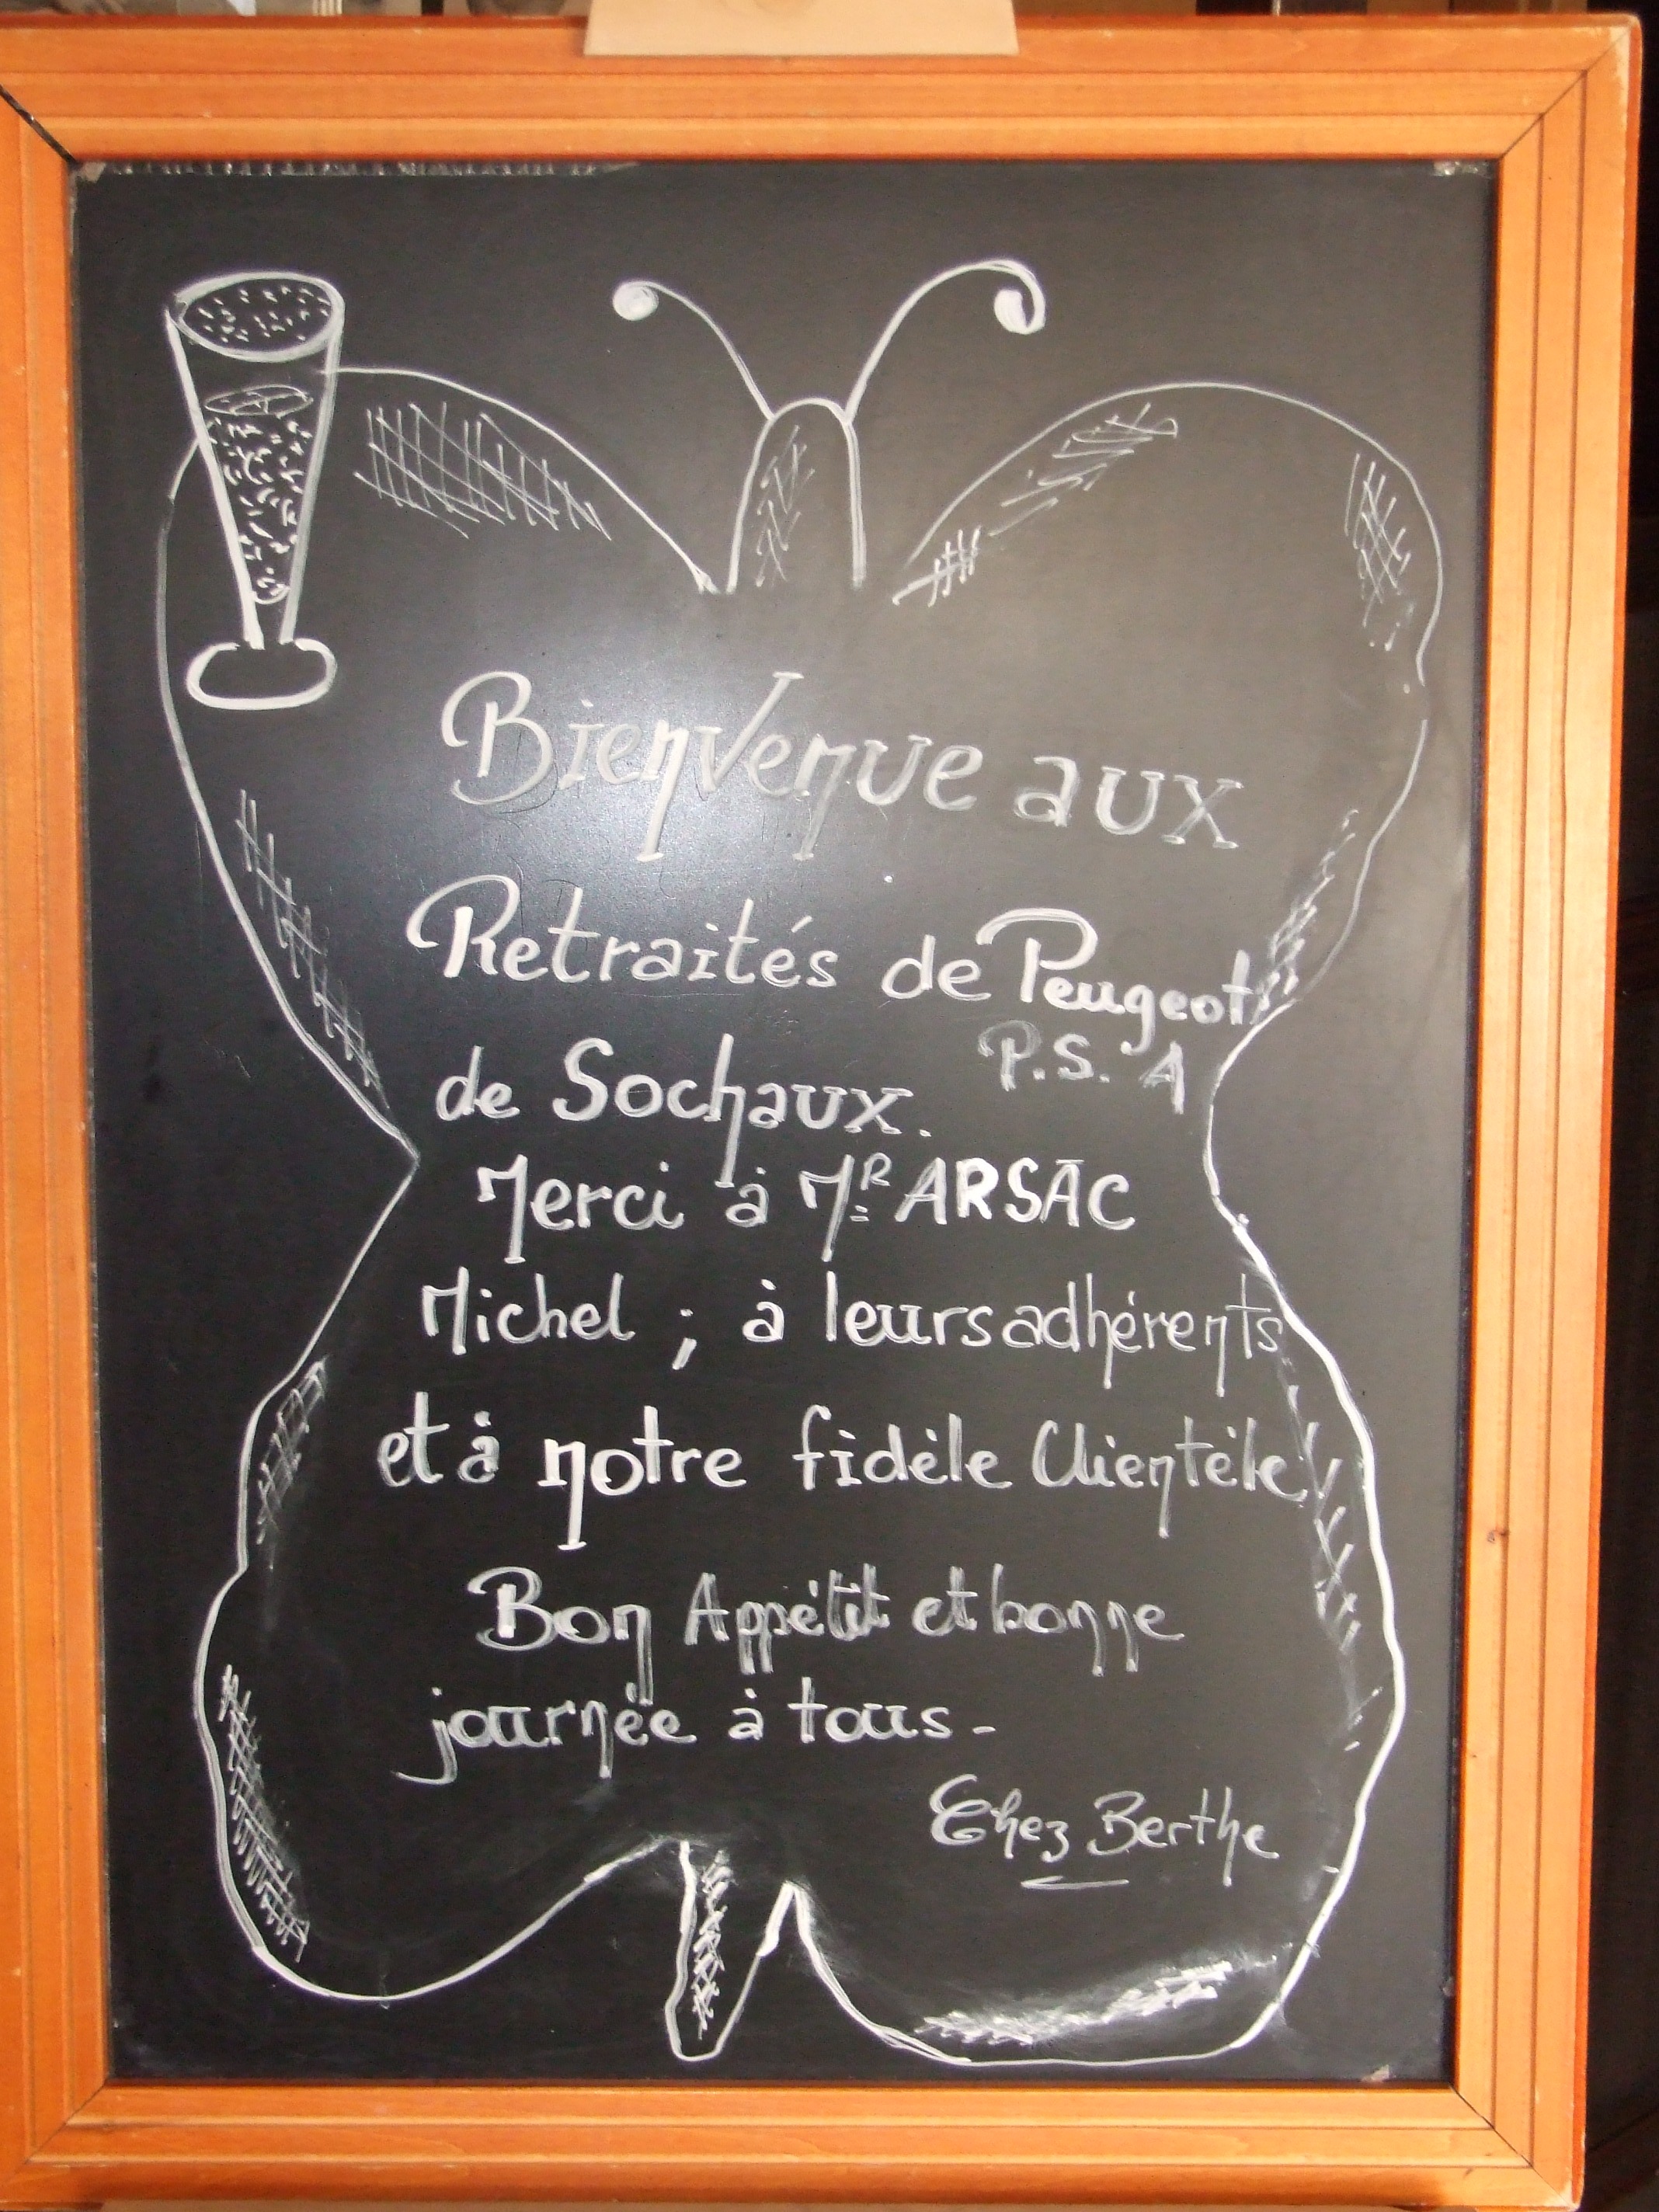 Bienvenue aux
Retraités de Peugeot
P.S. A
de Sochaux.
Merci à Mr ARSAC
Michel ; à leurs adhérents
et à notre fidèle Clientèle
Bon Appétit et bonne
journée à tous -
Chez Berthe